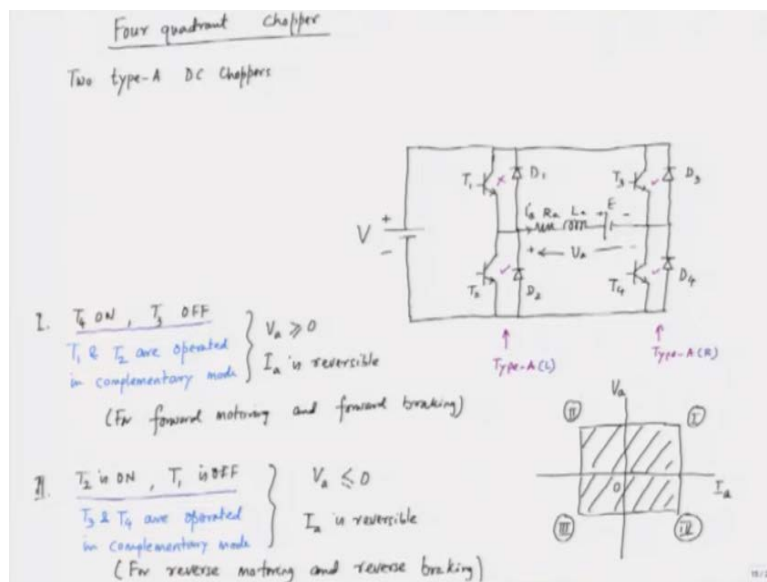 Four quadrant Chopper
Two type-A DC Choppers
T1 D1 T3 D3
ia Ra La + E -
V + -
+ ← Va -
T2 D2 T4 D4
Type-A(L) Type-A(R)
I. T4 ON, T3 OFF
T1 & T2 are operated
in complementary mode
Va ⩾ 0
Ia is reversible
(For forward motoring and forward braking)
Va
II I
0 Ia
III IV
II. T2 is ON, T1 is OFF
T3 & T4 are operated
in complementary mode
Va ⩽ 0
Ia is reversible
(For reverse motoring and reverse braking)